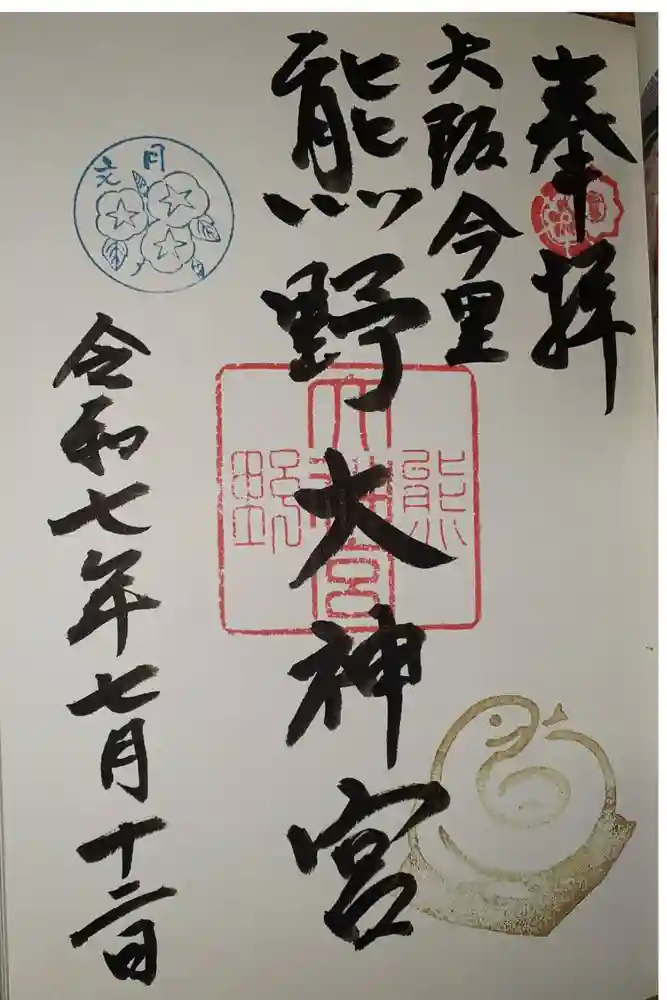 奉拝
大阪今里
熊野大神宮
熊野
大神宮
文月
令和七年七月十二日